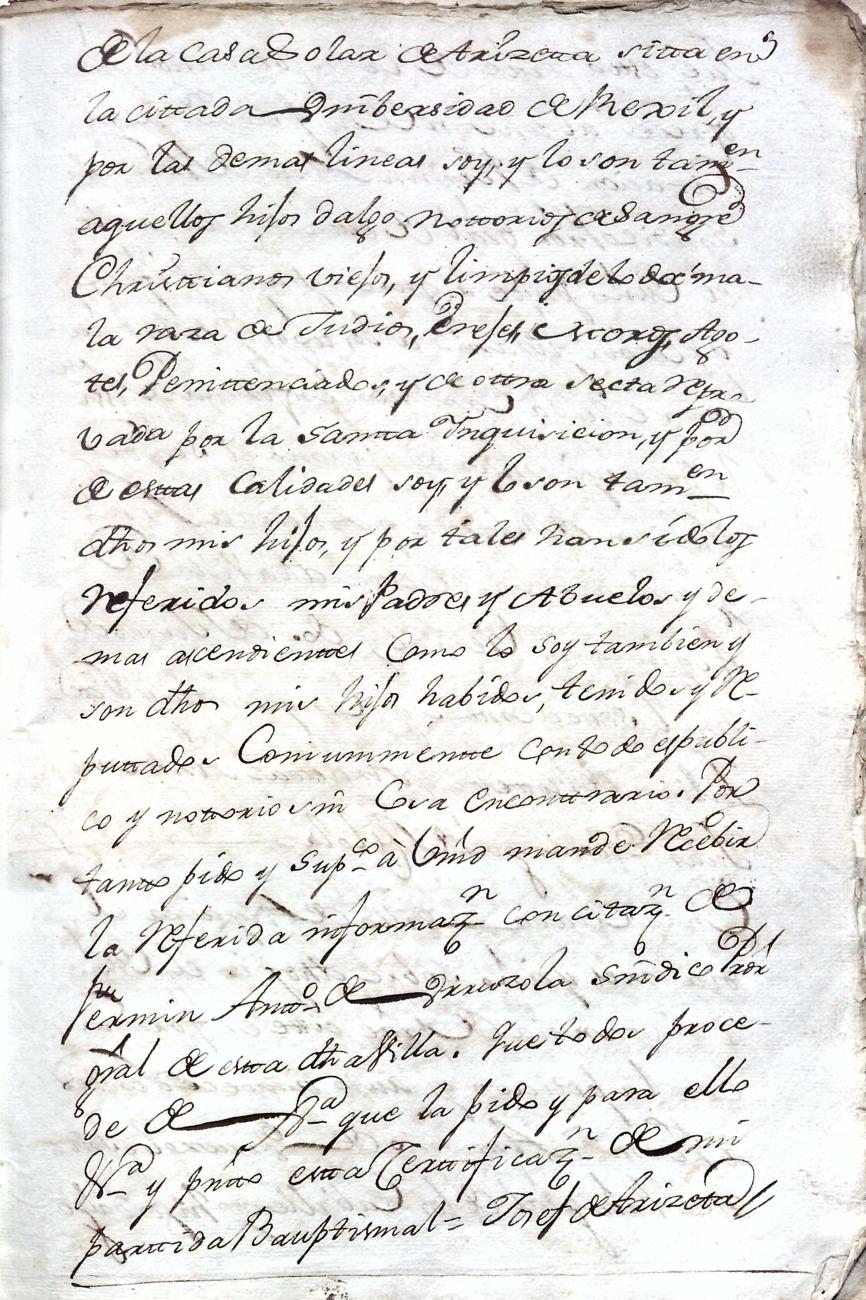 de la Casa Solar de Arizetta sitta en
la cittada Unibersidad de Rexil, y
por las demas lineas soy, y lo son tamen
aquellos hijos dalgo nottorios de Sangre
Christtianos viejos, y limpios de toda mala
la raza de Judios, Erejes, Moros, Ago-
tes, Penittenciados, y de ottra secta repro
vada por la Santta Inquisicion, y por
de esttas Calidades soy, y lo son tamen
dhos mis hijos, y por tales han sido los
referidos mis Padres y Abuelos y de-
mas ascendienttes Como lo soy tambien y
son dhos mis hijos habidos, tenidos y Re-
puttados Comunmentte Con todo es publi-
co y nottorio sin Cosa en conttrario. Por
tantto pido y supco â Vmd mande Recebir
la Referida informazn con citazn de
Fermin Antto de Urruzola Sindico Pror
gral de estta dha Villa. Que todo proce-
de de Jra que la pido y para ello
Jra y pntto estta Certtificazn de mi
parttida Bauptismal = Josef de Arizeta